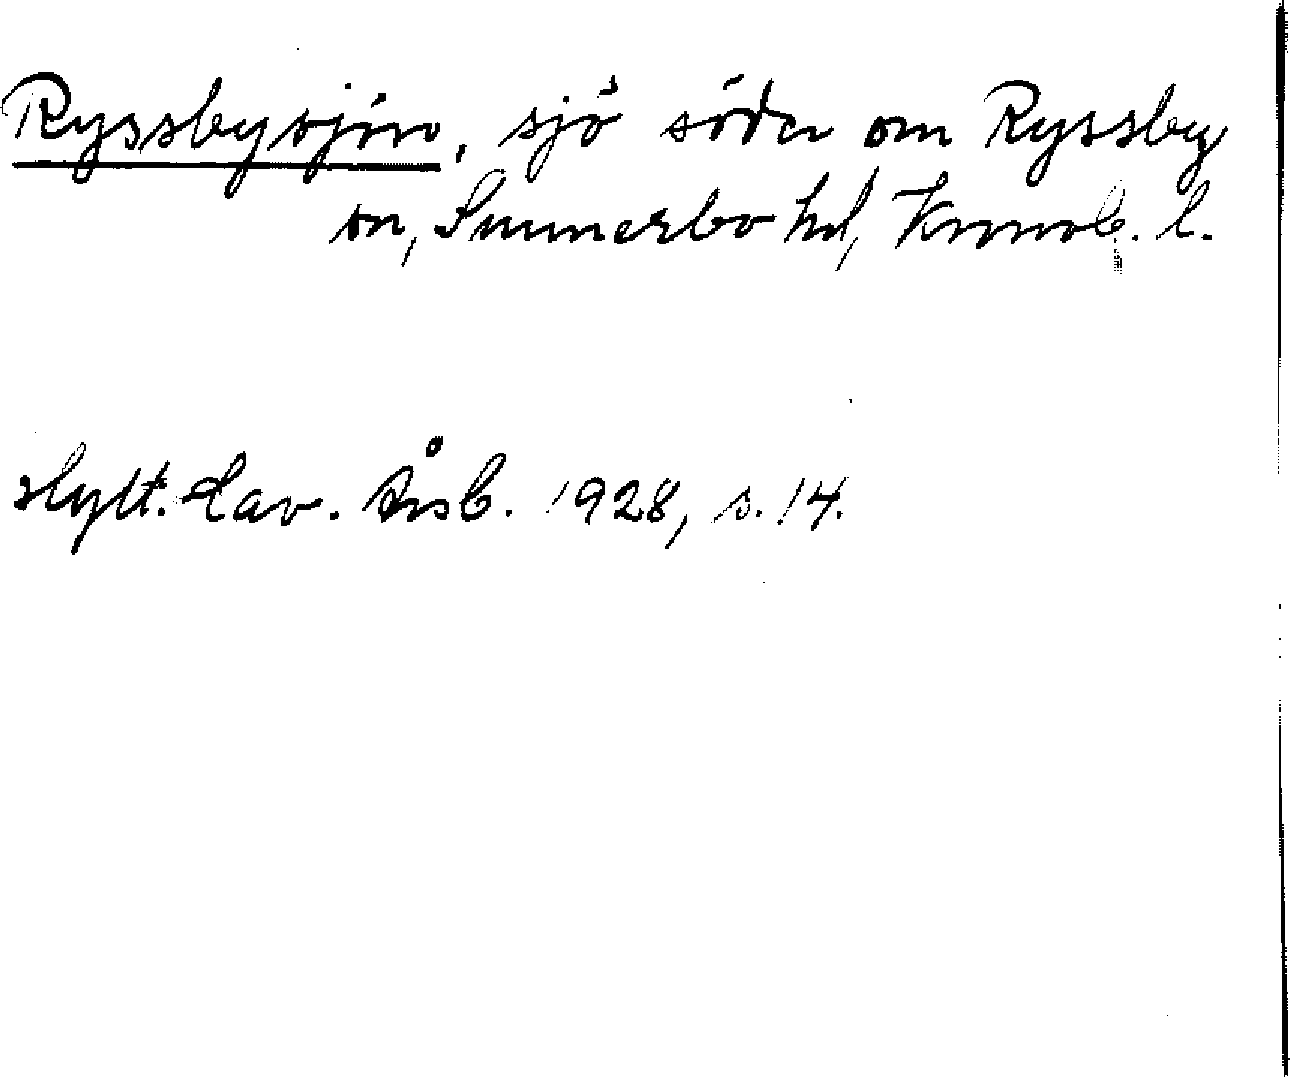 Ryssbysjön, sjö söder om Ryssby
sn, Sunnerbo hd, Kronob. l.
Hylt. Cav. Årsb. 1928, s. 14.